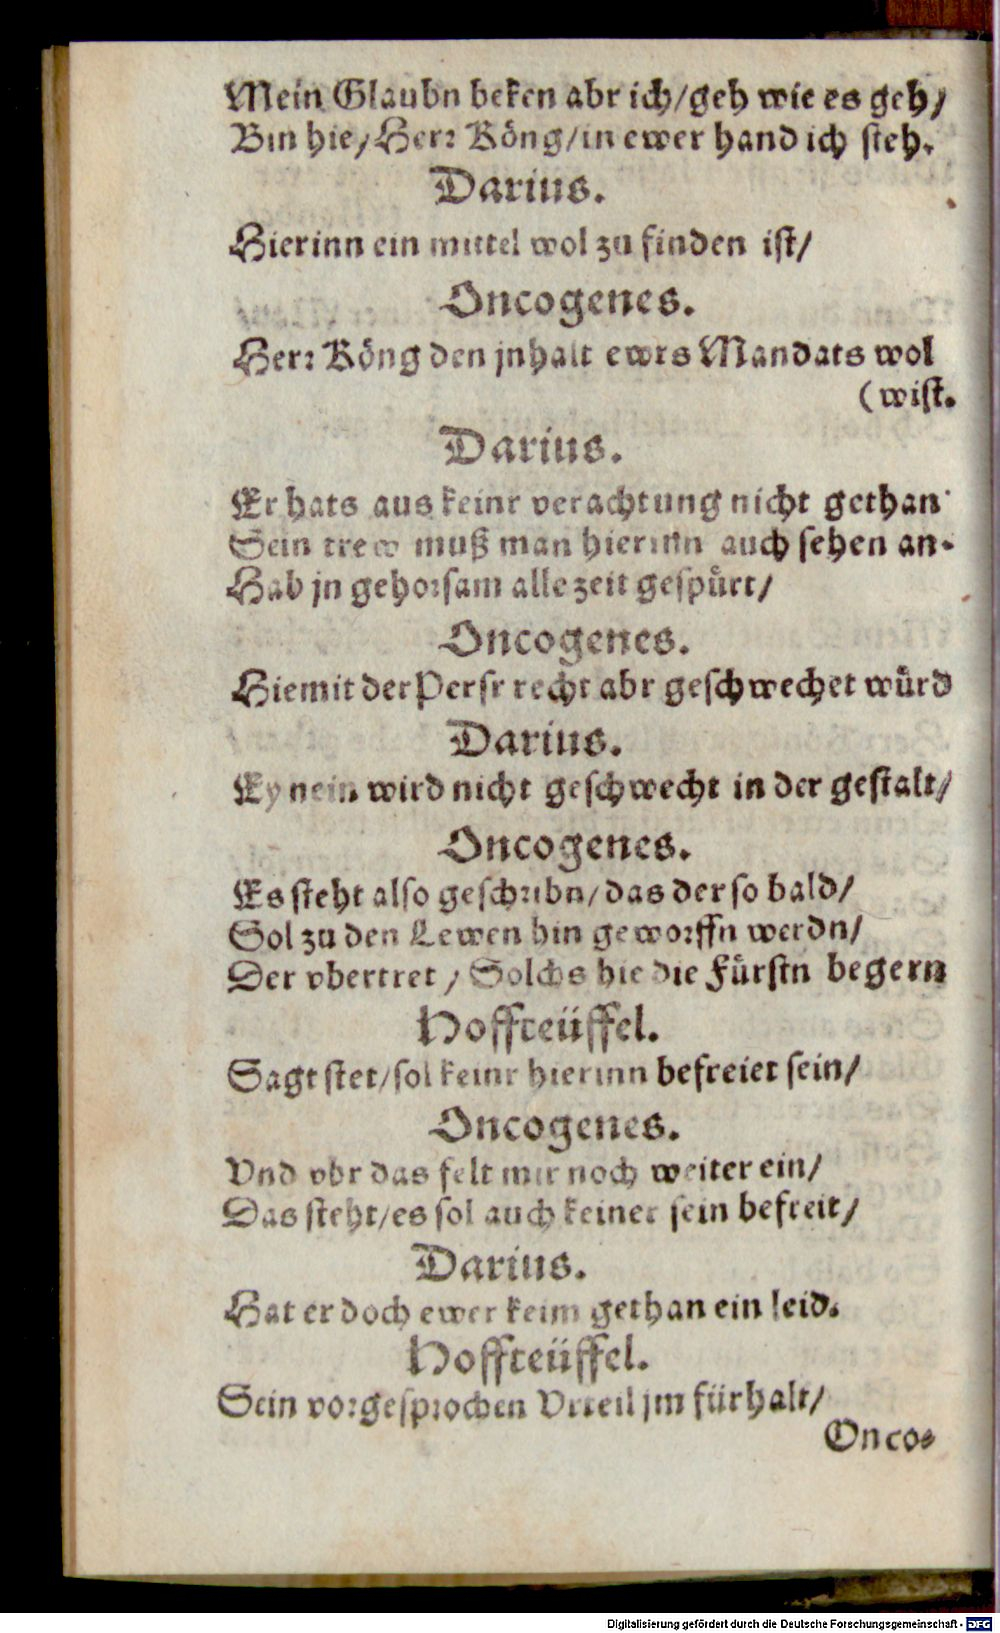 Mein Glaubn beken abr ich/geh wie es geh/
Bin hie/Herr Köng/in ewer hand ich steh.
Darius.
Hierinn ein mittel wol zu finden ist/
Oncogenes.
Herr Köng den jnhalt ewrs Mandats wol
(wist.
Darius.
Er hats aus keinr verachtung nicht gethan
Sein trew muß man hierinn auch sehen an.
Hab jn gehorsam alle zeit gespürt/
Oncogenes.
Hiemit der Persr recht abr geschwechet würd
Darius.
Ey nein wird nicht geschwecht in der gestalt/
Oncogenes.
Es steht also geschribn/das der so bald/
Sol zu den Lewen hin geworffn werdn/
Der vbertret / Solchs hie die Fürstn begern
Hoffteüffel.
Sagt stet/sol keinr hierinn befreiet sein/
Oncogenes.
Vnd vbr das felt mir noch weiter ein/
Das steht/es sol auch keiner sein befreit/
Darius.
Hat er doch ewer keim gethan ein leid.
Hoffteüffel.
Sein vorgesprochen Vrteil jm fürhalt/
Onco⸗
Digitalisierung gefördert durch die Deutsche Forschungsgemeinschaft - DFG